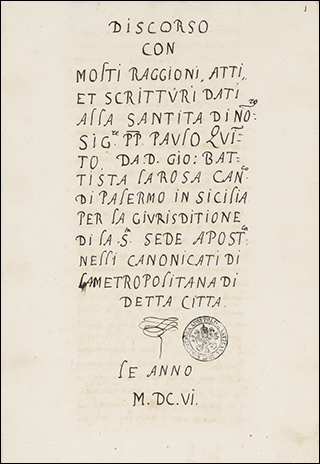 1
DISCORSO
CON
MOLTI RAGGIONI, ATTI,
ET SCRITTURI DATI
ALLA SANTITA DI NO:RO
SIG.RE PP. PAULO QUI~
TO. DA D. GIO: BAT-
TISTA LA ROSA CAN.CO
DI PALERMO IN SICILIA
PER LA GIURISDITIONE
DI LA S.TA SEDE APOST.CA
NELLI CANONICATI DI
LA METROPOLITANA DI
DETTA CITTA
LE ANNO
M.DC.VI.